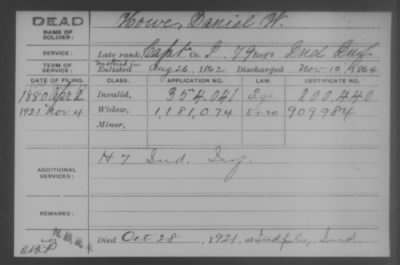 DEAD
NAME OF SOLDIER:
Howe, Daniel W.
SERVICE:
Late rank, Capt. Co. I, 79 Regt Ind Inf
TERM OF SERVICE
Mustered in
Enlisted Aug 26, 1862 Discharged Nov 10, 1864
DATE OF FILING. CLASS. APPLICATION NO. LAW. CERTIFICATE NO.
1880 Apr 2 Invalid, 354,041 200,440
1921 Nov 4 Widow, 1,181,074 909984
Minor,
ADDITIONAL SERVICES:
H 7 Ind. Inf.
REMARKS:
Died Oct 28, 1921, at Indpls, Ind.